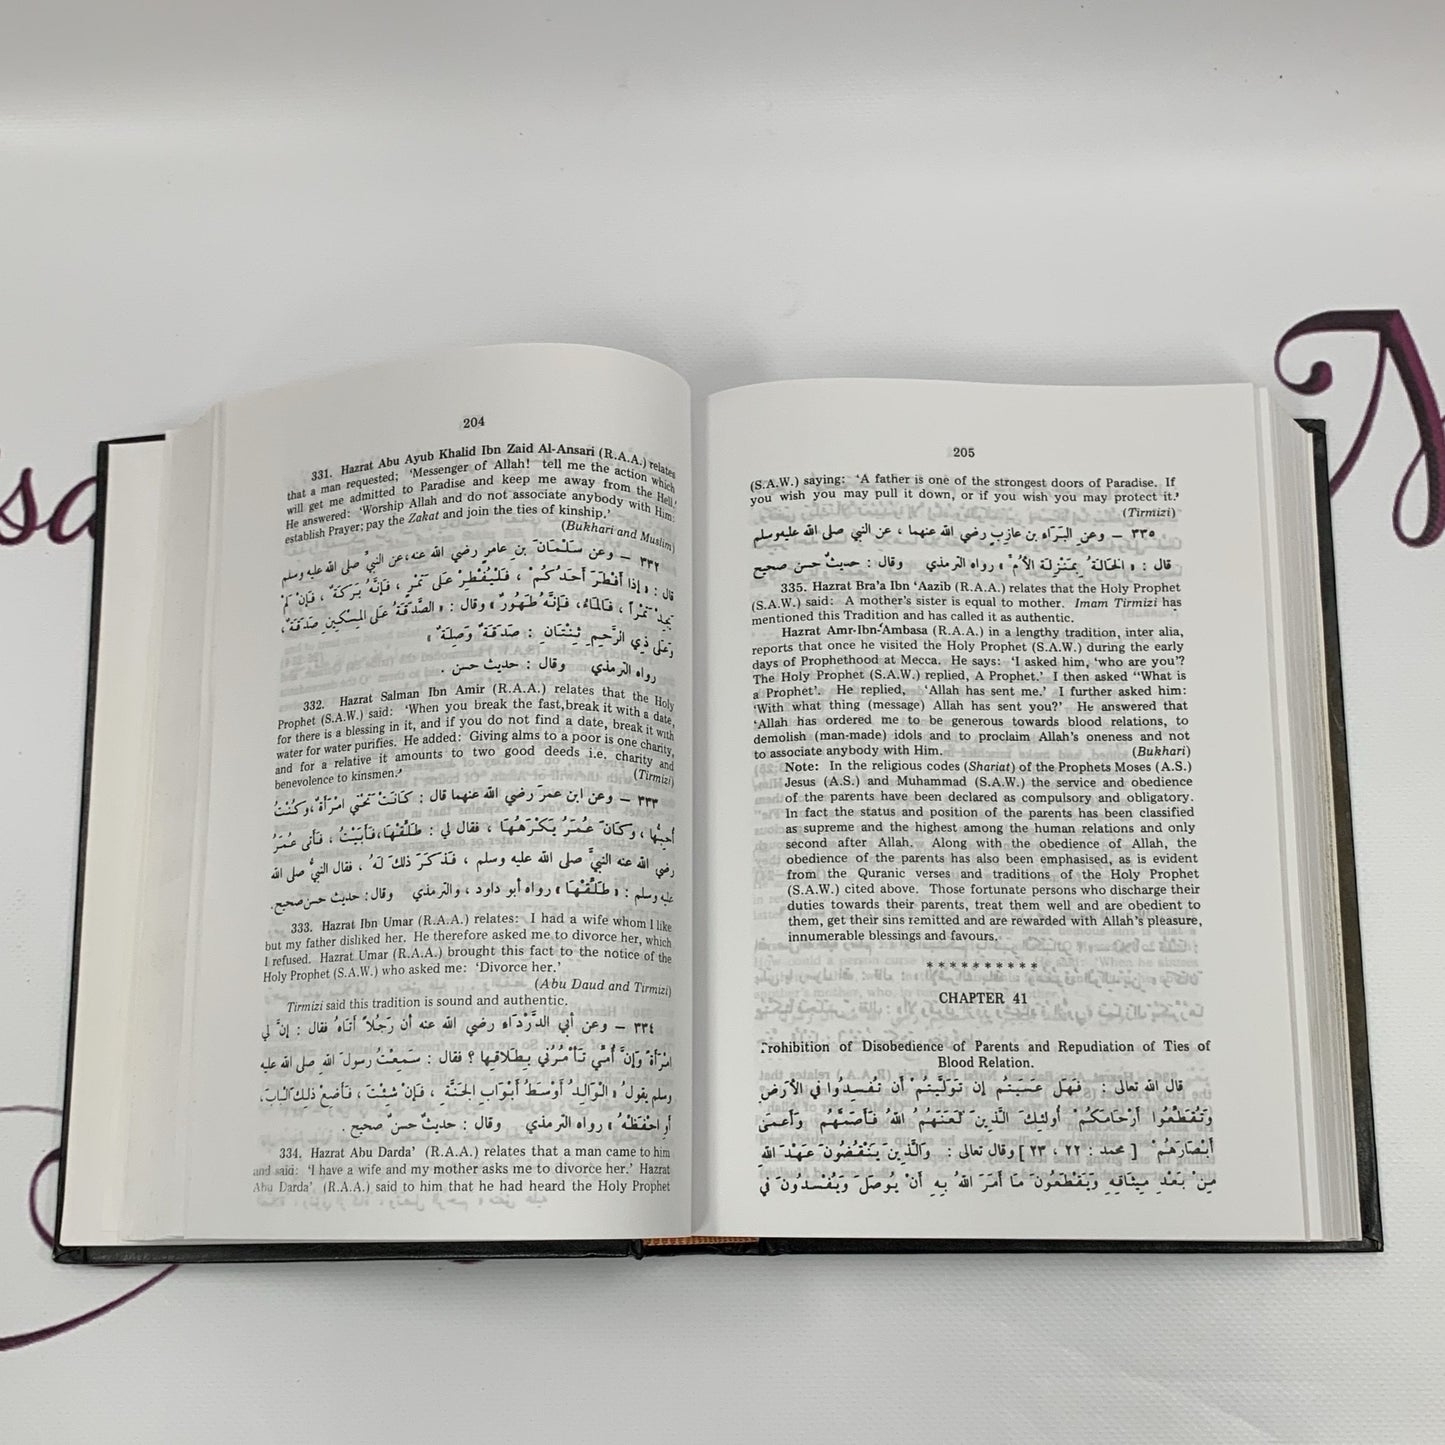 204
331. Hazrat Abu Ayub Khalid Ibn Zaid Al-Ansari (R.A.A.) relates
that a man requested; 'Messenger of Allah! tell me the action which
will get me admitted to Paradise and keep me away from the Hell.'
He answered: 'Worship Allah and do not associate anybody with Him:
establish Prayer; pay the Zakat and join the ties of kinship.'
(Bukhari and Muslim)
٣٣٢ – وعن سَلْمَانَ بن عامرٍ رضي الله عنه،عن النبي صلى الله عليه وسلم
قال : « إذا أَفْطَرَ أَحَدُكُمْ ، فَلْيُفْطِرْ عَلى تَمْرٍ ، فَإنَّهُ بَرَكَةٌ ، فَإنْ لَمْ
يَجِدْ تَمْراً ، فَالمَاءُ، فَإنَّهُ طَهُورٌ » وقال : « الصَّدَقَةُ عَلى المِسْكِينِ صَدَقَةٌ،
وَعَلى ذِي الرَّحِمِ ثِنْتَانِ : صَدَقَةٌ وَصِلَةٌ »
رواه الترمذي وقال : حديث حسن .
332. Hazrat Salman Ibn Amir (R.A.A.) relates that the Holy
Prophet (S.A.W.) said: 'When you break the fast,break it with a date,
for there is a blessing in it, and if you do not find a date, break it with
water for water purifies. He added: Giving alms to a poor is one charity,
and for a relative it amounts to two good deeds i.e. charity and
benevolence to kinsmen.'
(Tirmizi)
٣٣٣ – وعن ابن عمرَ رضي الله عنهما قال : كَانَتْ تَحْتي امْرَأةٌ،وكُنْتُ
أُحِبُّها ، وَكَانَ عُمَرُ يَكْرَهُهَا ، فقال لي : طَلِّقْهَا،فَأبَيْتُ ، فَأتى عُمَرُ
رضي الله عنه النبيَّ صلى الله عليه وسلم ، فَذَكَرَ ذلِكَ لَهُ ، فقال النبيُّ صلى الله
عليه وسلم : « طَلِّقْهَا » رواه أبو داود ، والترمذي وقال: حديث حسن صحيح.
333. Hazrat Ibn Umar (R.A.A.) relates: I had a wife whom I like
but my father disliked her. He therefore asked me to divorce her, which
I refused. Hazrat Umar (R.A.A.) brought this fact to the notice of the
Holy Prophet (S.A.W.) who asked me: 'Divorce her.'
(Abu Daud and Tirmizi)
Tirmizi said this tradition is sound and authentic.
٣٣٤ – وعن أبي الدَّرْدَاءِ رضي الله عنه أن رَجُلاً أتَاهُ فقال : إنَّ لي
امْرَأةً وَإنَّ أُمِّي تَأْمُرُني بِطَلاقِها ؟ فقال : سَمِعْتُ رسولَ اللهِ صلى الله عليه
وسلم يقولُ : الْوَالِدُ أوْسَطُ أبْوَابِ الجَنَّةِ ، فَإنْ شِئْتَ ، فَأضِعْ ذلِكَ الْبَابَ،
أوِ احْفَظْهُ » رواه الترمذي وقال : حديثٌ حسنٌ صحيح .
334. Hazrat Abu Darda' (R.A.A.) relates that a man came to him
and said: 'I have a wife and my mother asks me to divorce her.' Hazrat
Abu Darda' (R.A.A.) said to him that he had heard the Holy Prophet
205
(S.A.W.) saying: 'A father is one of the strongest doors of Paradise. If
you wish you may pull it down, or if you wish you may protect it.'
(Tirmizi)
٣٣٥ – وعن البَرَاءِ بن عازبٍ رضي الله عنهما ، عن النبي صلى الله عليه وسلم
قال : « الخَالَةُ بِمَنْزِلَةِ الأُمِّ » رواه الترمذي وقال : حديثٌ حسن صحيح
335. Hazrat Bra'a Ibn 'Aazib (R.A.A.) relates that the Holy Prophet
(S.A.W.) said: A mother's sister is equal to mother. Imam Tirmizi has
mentioned this Tradition and has called it as authentic.
Hazrat Amr-Ibn-'Ambasa (R.A.A.) in a lengthy tradition, inter alia,
reports that once he visited the Holy Prophet (S.A.W.) during the early
days of Prophethood at Mecca. He says: 'I asked him, 'who are you'?
The Holy Prophet (S.A.W.) replied, A Prophet.' I then asked "What is
a Prophet'. He replied, 'Allah has sent me.' I further asked him:
'With what thing (message) Allah has sent you?' He answered that
'Allah has ordered me to be generous towards blood relations, to
demolish (man-made) idols and to proclaim Allah's oneness and not
to associate anybody with Him. (Bukhari)
Note: In the religious codes (Shariat) of the Prophets Moses (A.S.)
Jesus (A.S.) and Muhammad (S.A.W.) the service and obedience
of the parents have been declared as compulsory and obligatory.
In fact the status and position of the parents has been classified
as supreme and the highest among the human relations and only
second after Allah. Along with the obedience of Allah, the
obedience of the parents has also been emphasised, as is evident
from the Quranic verses and traditions of the Holy Prophet
(S.A.W.) cited above. Those fortunate persons who discharge their
duties towards their parents, treat them well and are obedient to
them, get their sins remitted and are rewarded with Allah's pleasure,
innumerable blessings and favours.
* * * * * * * * * *
CHAPTER 41
Prohibition of Disobedience of Parents and Repudiation of Ties of
Blood Relation.
قال الله تعالى : فَهَلْ عَسَيْتُمْ إن تَوَلَّيْتُمْ أَن تُفْسِدُوا في الأَرْضِ
وَتُقَطِّعُوا أَرْحَامَكُمْ أُولئِكَ الَّذِينَ لَعَنَهُمُ اللهُ فَأَصَمَّهُمْ وَأَعْمَى
أَبْصَارَهُمْ [ محمد : ٢٢ ، ٢٣ ] وقال تعالى : وَالَّذِينَ يَنْقُضُونَ عَهْدَ اللهِ
مِنْ بَعْدِ مِيثَاقِهِ وَيَقْطَعُونَ مَا أَمَرَ اللهُ بِهِ أَنْ يُوصَلَ وَيُفْسِدُونَ في